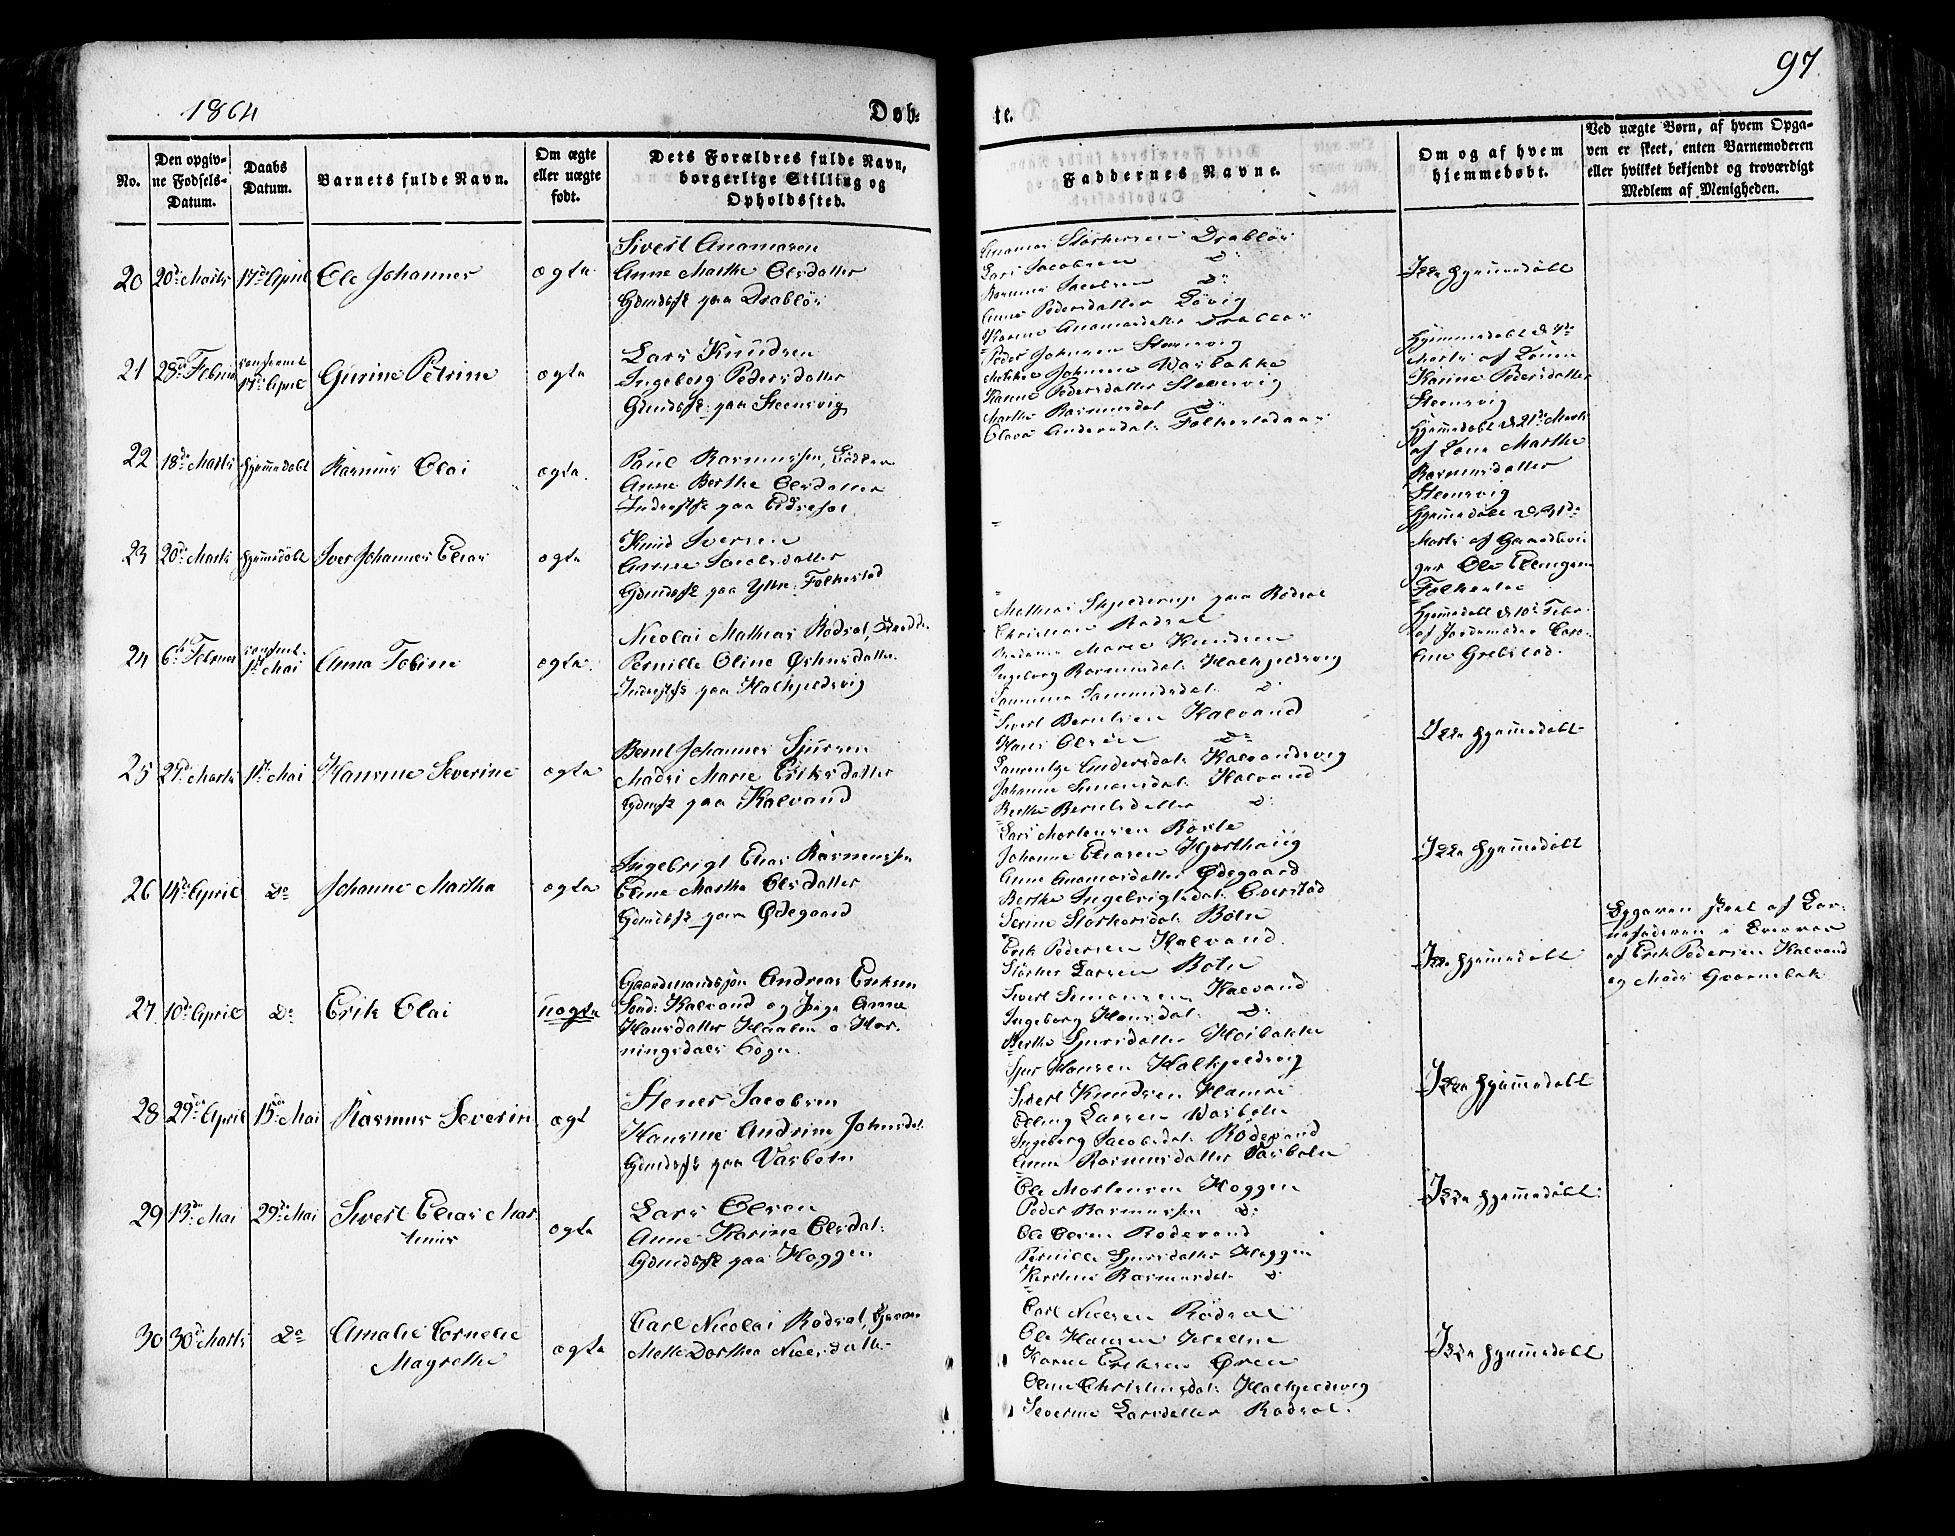 1864
Døb-
te.
97
No.
Den opgiv-
ne Fødsels-
Datum.
Daabs
Datum.
Barnets fulde Navn.
Om ægte
eller uægte
født.
Dets Forældres fulde Navn,
borgerlige Stilling og
Opholdssted.
Faddernes Navne.
Om og af hvem
hjemmedøbt.
Ved uægte Børn, af hvem Opga-
ven er skeet, enten Barnemoderen
eller hvilket bekjendt og troværdigt
Medlem af Menigheden.
20 20de Marts 17de April Ole Johannes ægte
Sivert Anamasen
Anne Marthe Olsdatter
Gdmdsfk paa Drabløs
Anamas Størkersen Drabløs
Lars Jacobsen Do
Rasmus Jacobsen Do
Anne Pedersdatter Løvig
Karne Anamasdatter Drabløs
Ikke hjemmedøbt
21 28de Februar 17de April Gurine Petrine ægte
Lars Knudsen
Ingeborg Pedersdatter
Gdmdsfk paa Steensvig
Peder Johnsen Steensvig
Johnsen Vasbakke
Karne Pedersdatter Steensvig
Marthe Rasmusdat Do
Olava Andersdat
Hjemmedøbt d 4de
Marts af Konen
Karine Pedersdatter
Steensvig
22 18de Marts hjemmedøbt Rasmus Olai ægte
Paul Rasmussen,
Anne Berthe Olsdatter
Inderstfk paa Eidresæt
Hjemmedøbt d 21de Marts
af Kone Marthe
Rasmusdatter
Steensvig
23 20de Marts hjemmedøbt Iver Johannes Elias ægte
Knud Iversen
Anne Jacobsdatter
Gdmdsfk paa Ytre Folkestad
Hjemmedøbt d 21de
Marts af
Ole
24 6te Februar 1ste Mai Anna Tobine ægte
Nicolai Mathias Rødsæt,
Pernille Oline
Inderstfk paa Halkjeldsvig
Mathias Skjelderup paa Rødsæt
Christian Rødsæt
Madame Marie Knudsen
Ingeborg Rasmusdat Halkjeldsvig
Sammundsdat. Do
Hjemmedøbt d 10de Febr.
af Jordemoder
Grebstad.
25 1ste Mai Hansine Severine ægte
Bernt Johannes Sjursen
Madsi Marie Eriksdatter
Gdmsfk paa Kalvand
Sivert Berntsen Kalvand
Hans Olsen Do
Laurentze Andersdat. Kalvandsvig
Johanne Simonsdat. Kalvand
Berthe Berntsdatter Do
Ikke hjemmedøbt
26 14de April Do Johanne Martha ægte
Ingebrigt Elias Rasmussen
Eline Martha Olsdatter
Gdmdsfk paa Ødegaard
Lars Mortensen
Johanne Eliasen Hjorthaug
Anne Anamasdatter Ødegaard
Berthe Ingebrigtsdat. Everstad
Serine Størkersdat. Botn
Ikke hjemmedøbt
27. 10de April Do Erik Olai uægte
Gaardmandssøn Andreas Eriksen
Kalvand og Pige Anne
Hansdatter Haalen o Hor-
ningsdals Sogn.
Erik Pedersen Kalvand.
Størker Larsen Botn
Sivert Simonsen Kalvand
Ingeborg Hansdat. Do
Berthe Sjursdatter Høibakke
Ikke hjemmedøbt
Opgaven skeet af Bar-
nefaderen i Overvær
af Erik Pedersen Kalvand
og Mads
28 29de April 15de Mai Rasmus Severin ægt
Stener Jacobsen
Hansine Andrine Johnsdat.
Gdmdsfk paa Vasbotn
Sjur Hansen Halkjeldsvig
Sivert Knudsen
Elling Larsen Vasbotn
Ingeborg Jacobsdat. Rødevand
Anne Rasmusdatter Vasbotn
Ikke hjemmedøbt
29 13de Mai 29de Mai Sivert Elias Mar-
tinus ægte
Lars Olsen
Anne Karine Olsdat:
Gdmdsfk paa Hoggen
Ole Mortensen Hoggen
Peder Rasmussen Do
Ole Olsen Rødevand
Pernille Sjursdatter Hoggen
Kirstine Rasmusdat. Do
Ikke hjemmedøbt.
30 30de Marts Do Amalie Cornelie
Magrethe ægte
Carl Nicolai Rødsæt,
Mette Dorthea Nielsdatter
Carl Nielsen Rødsæt
Ole Hansen
Karne Eriksen Øren
Christensdat. Halkjeldsvig
Severine Larsdatter Rødsæt.
Ikke hjemmedøbt